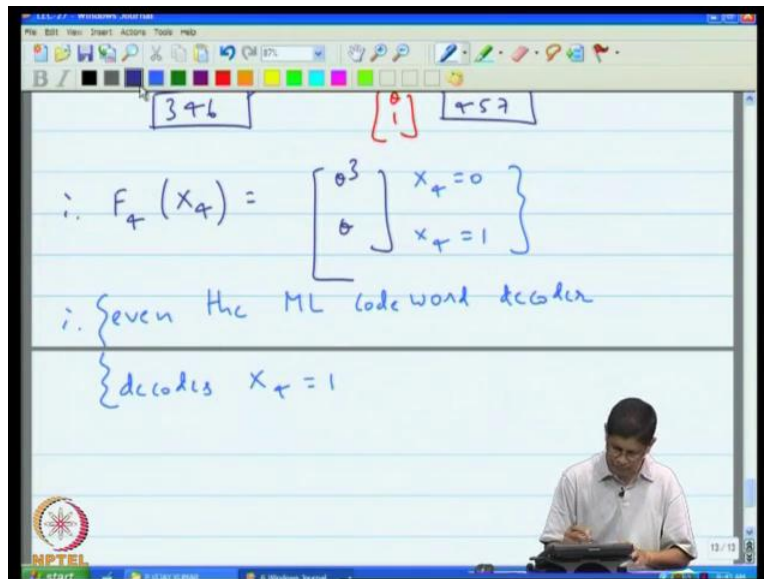 LEC-27 - Windows Journal
File Edit View Insert Actions Tools Help
87%
B I
346 [θ 1] 457
∴ F₄ (X₄) = [θ³ θ] X₄ = 0 X₄ = 1 }
∴ { even the ML codeword decoder
{ decodes X₄ = 1
13 / 13
NPTEL
start Windows Journal